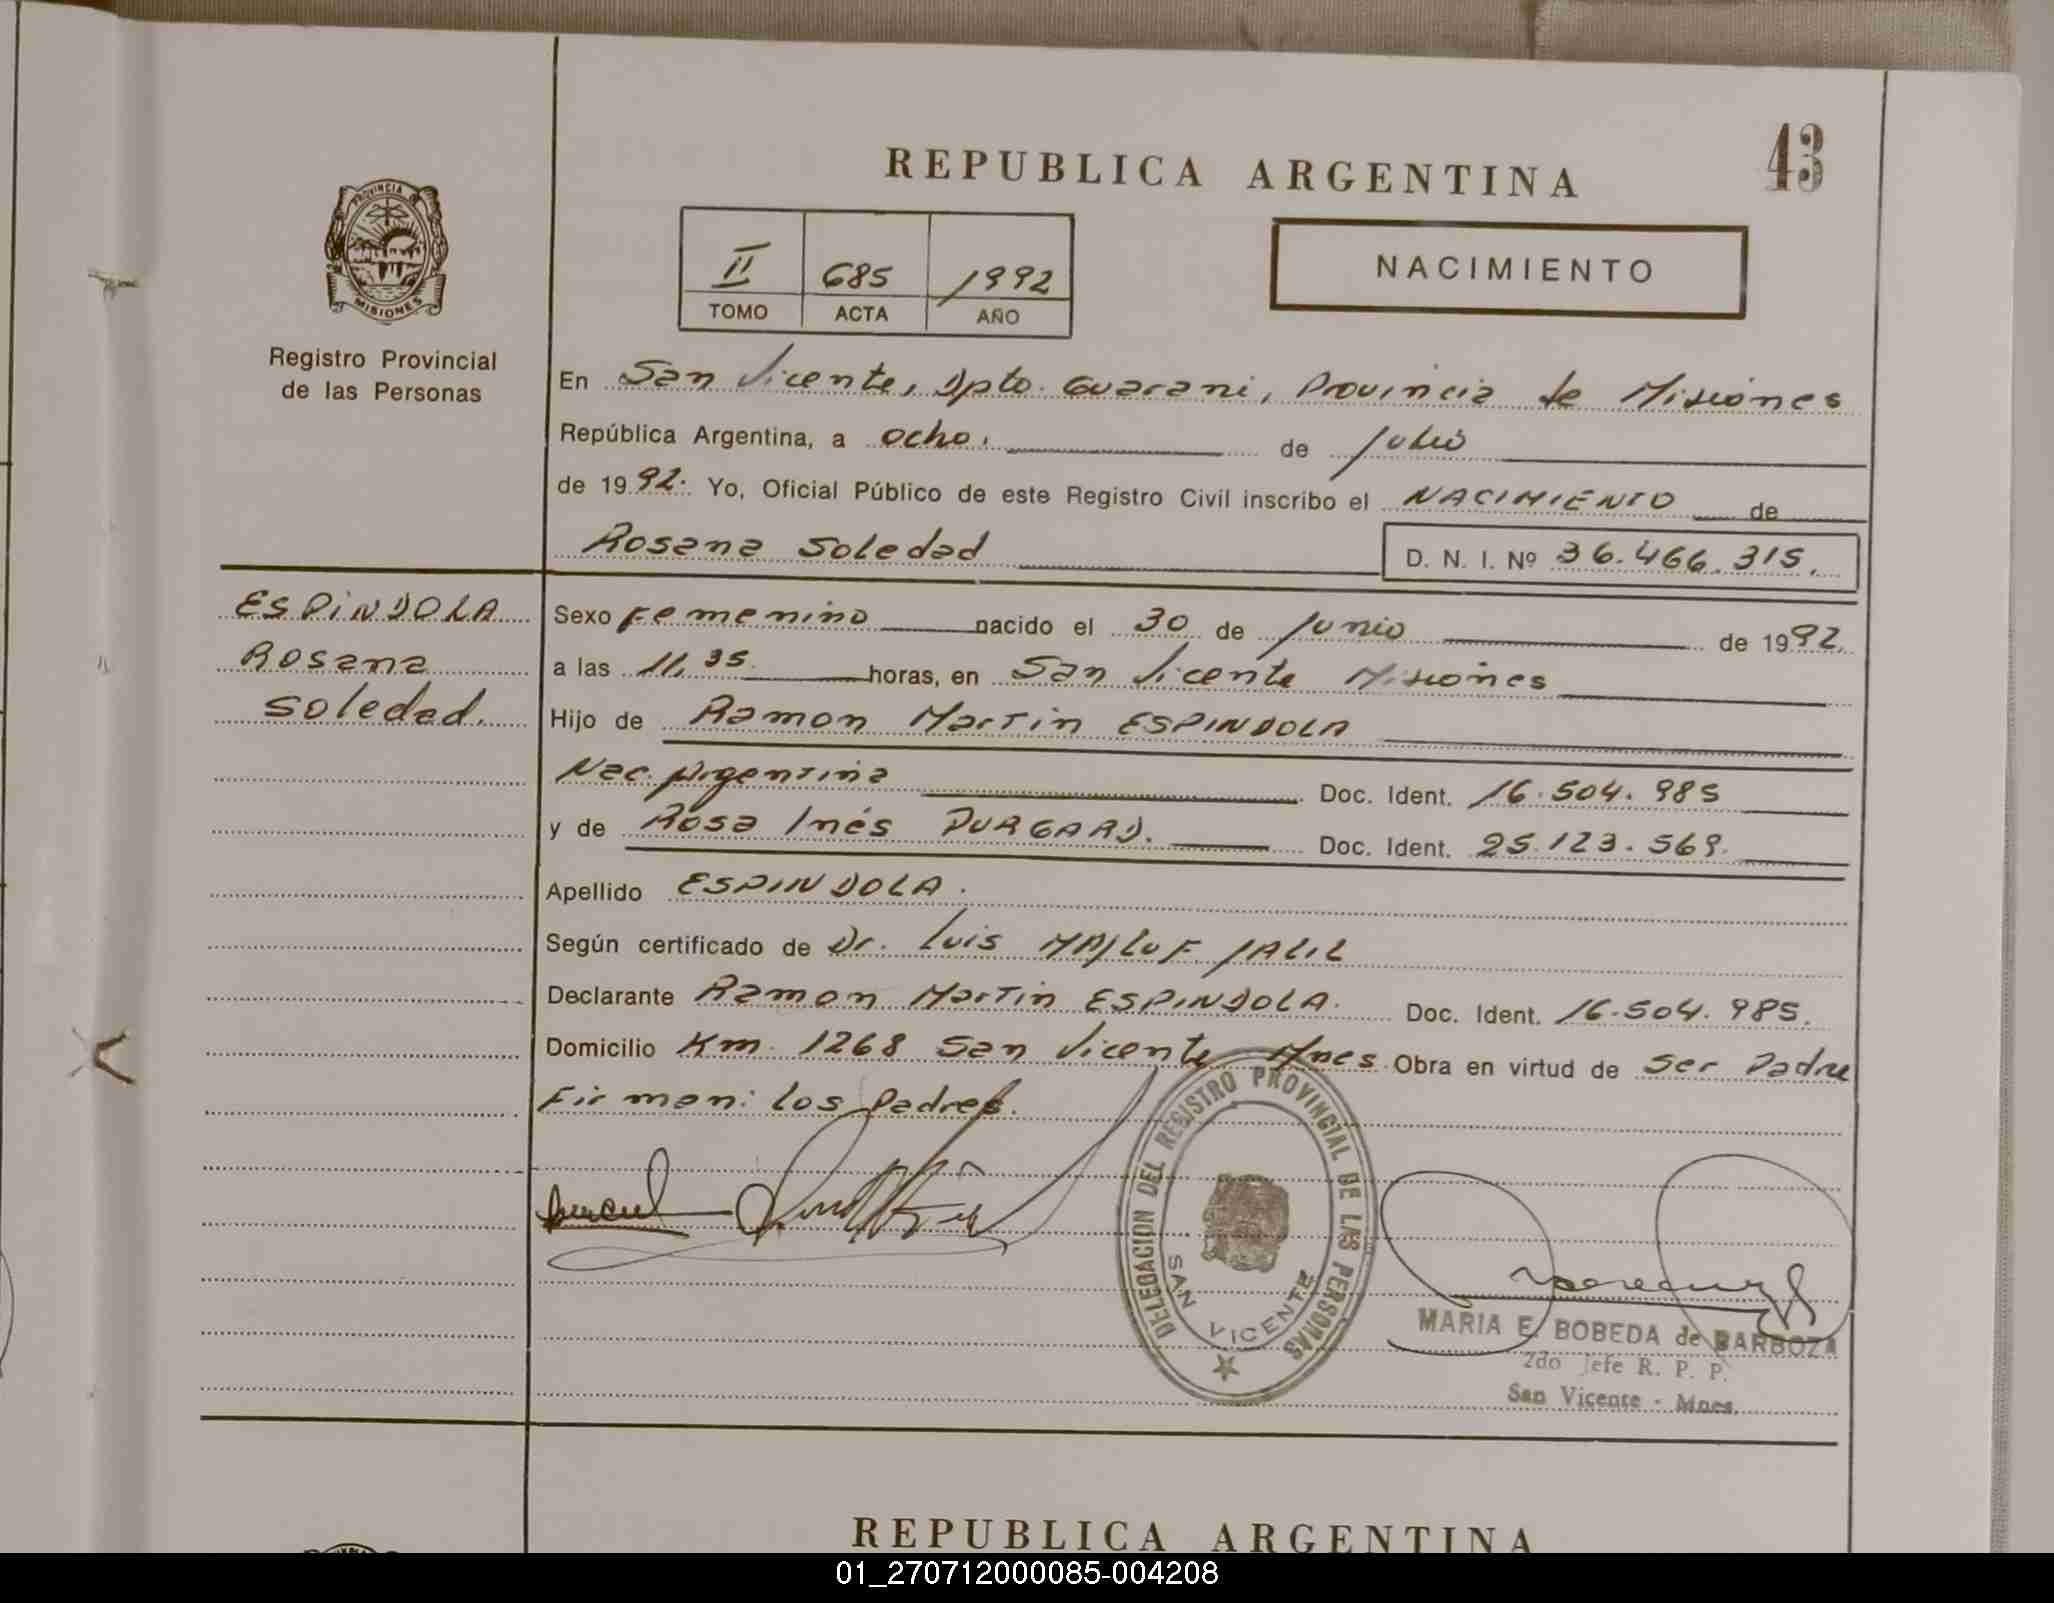 43
REPUBLICA ARGENTINA
PROVINCIA
MISIONES
Registro Provincial
de las Personas
II 685 1992
TOMO ACTA AÑO
NACIMIENTO
En San Vicente, Dpto. Guarani, Provincia de Misiones
República Argentina, a ocho, de Julio
de 1992. Yo, Oficial Público de este Registro Civil inscribo el NACIMIENTO de
Rosana Soledad D. N. I. Nº 36.466.315.
ESPINDOLA
Rosana
Soledad.
Sexo Femenino nacido el 30 de Junio de 1992.
a las 11,35 horas, en San Vicente Misiones
Hijo de Ramon Martin ESPINDOLA
Nac. Argentina Doc. Ident. 16.504.985
y de Rosa Inés DURGARD. Doc. Ident. 25.123.569.
Apellido ESPINDOLA.
Según certificado de Dr. Luis MAJLUF JALIL
Declarante Ramon Martin ESPINDOLA. Doc. Ident. 16.504.985.
Domicilio Km. 1268 San Vicente Mnes. Obra en virtud de ser Padre
Firman: los Padres.
DELEGACION DEL REGISTRO PROVINCIAL DE LAS PERSONAS
SAN VICENTE
MARIA E. BOBEDA de BARBOZA
2do Jefe R. P. P.
San Vicente - Mnes.
REPUBLICA ARGENTINA
01_270712000085-004208